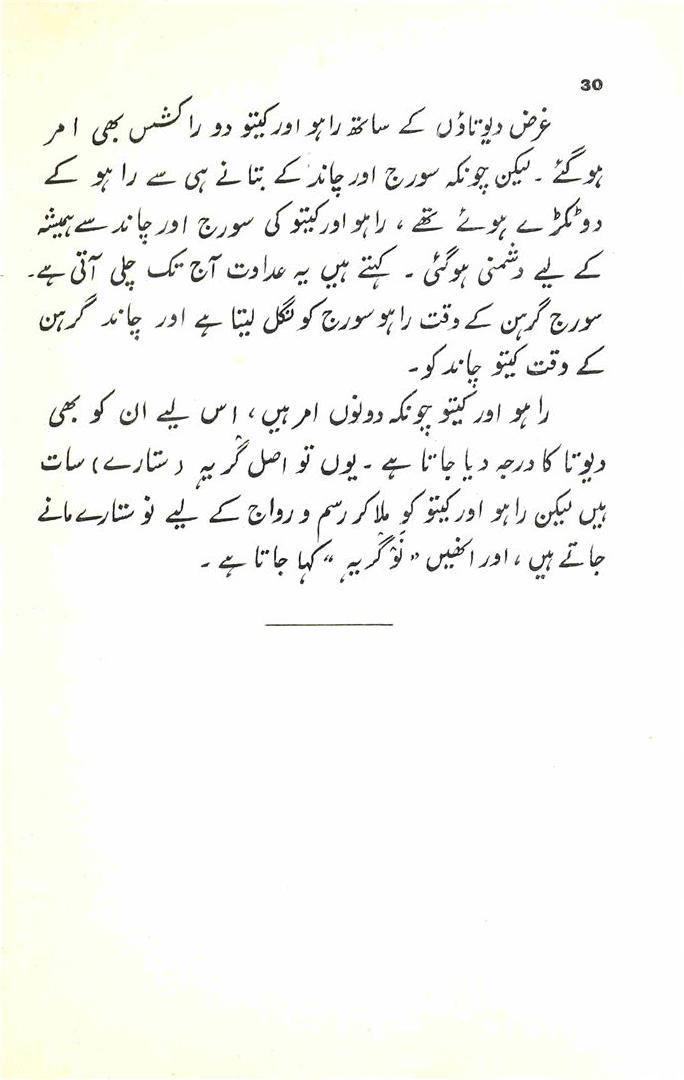 30
غرض دیوتاؤں کے ساتھ راہو اور کیتو دو راکشس بھی امر
ہوگئے ۔ لیکن چونکہ سورج اور چاند کے بتانے ہی سے راہو کے
دو ٹکڑے ہوئے تھے ، راہو اور کیتو کی سورج اور چاند سے ہمیشہ
کے لیے دشمنی ہوگئی ۔ کہتے ہیں یہ عداوت آج تک چلی آتی ہے۔
سورج گرہن کے وقت راہو سورج کو نگل لیتا ہے اور چاند گرہن
کے وقت کیتو چاند کو۔
راہو اور کیتو چونکہ دونوں امر ہیں ، اس لیے ان کو بھی
دیوتا کا درجہ دیا جاتا ہے ۔ یوں تو اصل گریہہ (ستارے) سات
ہیں لیکن راہو اور کیتو کو ملا کر رسم و رواج کے لیے نو ستارے مانے
جاتے ہیں ، اور انھیں "نَوگریہہ" کہا جاتا ہے ۔